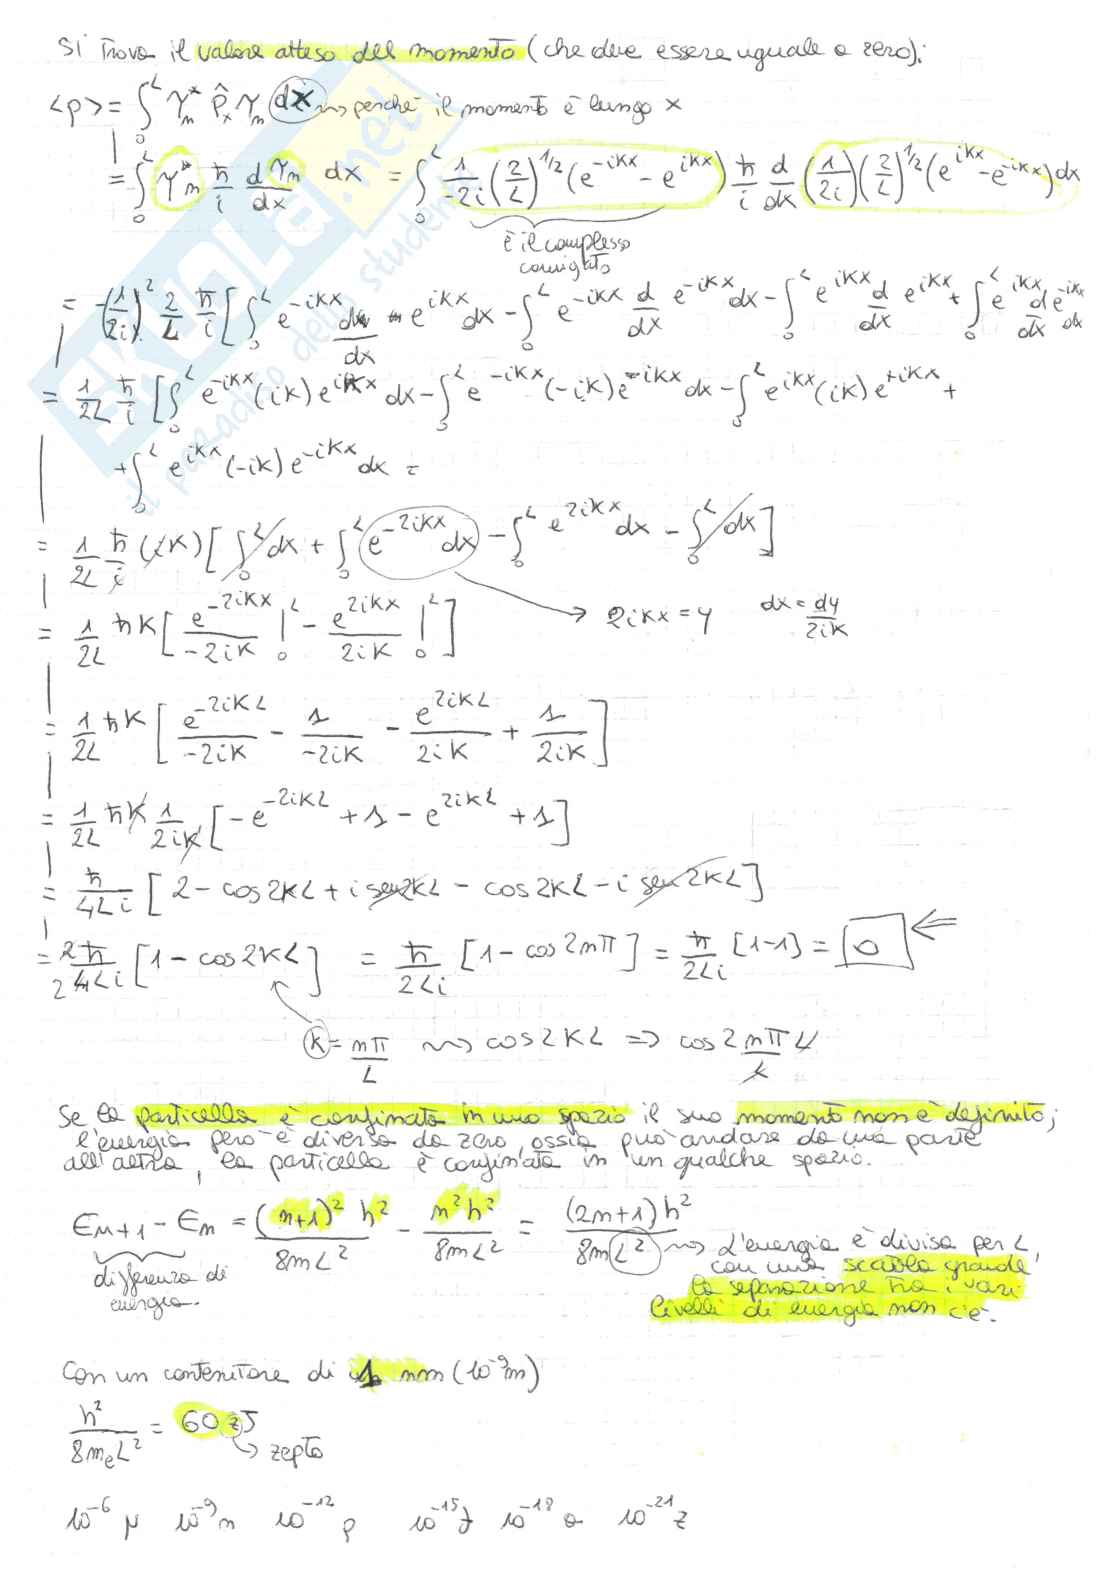 Si trova il valore atteso del momento (che deve essere uguale a zero):
<p> = ∫₀ᴸ Ψₙ* p̂ₓ Ψₙ dx ⇝ perché il momento è lungo x
= ∫₀ᴸ Ψₙ* ħ/i dΨₙ/dx dx = ∫₀ᴸ 1/-2i (2/L)^1/2 (e^-ikx - e^ikx) ħ/i d/dx (1/2i)(2/L)^1/2 (e^ikx - e^-ikx) dx
è il complesso
coniugato
= -(1/2i)² 2/L ħ/i [∫₀ᴸ e^-ikx d/dx e^ikx dx - ∫₀ᴸ e^-ikx d/dx e^-ikx dx - ∫₀ᴸ e^ikx d/dx e^ikx + ∫₀ᴸ e^ikx d/dx e^-ikx dx
= 1/2L ħ/i [∫₀ᴸ e^-ikx (ik) e^ikx dx - ∫₀ᴸ e^-ikx (-ik) e^-ikx dx - ∫₀ᴸ e^ikx (ik) e^+ikx +
+ ∫₀ᴸ e^ikx (-ik) e^-ikx dx =
= 1/2L ħ/i (ik) [∫₀ᴸ dx + ∫₀ᴸ e^-2ikx dx - ∫₀ᴸ e^2ikx dx - ∫₀ᴸ dx]
→ 2ikx = y dx = dy/2ik
= 1/2L ħk [e^-2ikx/-2ik |₀ᴸ - e^2ikx/2ik |₀ᴸ]
= 1/2L ħk [e^-2ikL/-2ik - 1/-2ik - e^2ikL/2ik + 1/2ik]
= 1/2L ħk 1/2ik [-e^-2ikL + 1 - e^2ikL + 1]
= ħ/4Li [2 - cos2kL + i sen2kL - cos2kL - i sen2kL]
= 2ħ/4Li [1 - cos2kL] = ħ/2Li [1 - cos2nπ] = ħ/2Li [1-1] = 0 ⇐
k = nπ/L ⇝ cos2kL => cos2 nπ/L L
Se la particella è confinata in uno spazio il suo momento non è definito;
l'energia però è diversa da zero, ossia può andare da una parte
all'altra, la particella è confinata in un qualche spazio.
Eₙ₊₁ - Eₙ = (n+1)² h²/8mL² - n²h²/8mL² = (2n+1)h²/8mL² ⇝ L'energia è divisa per L,
con una scatola grande
la separazione tra i vari
livelli di energia non c'è.
differenza di
energia.
Con un contenitore di 1 nm (10⁻⁹m)
h²/8mₑL² = 60 zJ
→ zepto
10⁻⁶ μ 10⁻⁹ n 10⁻¹² p 10⁻¹⁵ f 10⁻¹⁸ a 10⁻²¹ z
SKUOLA.net
il paradiso dello studente